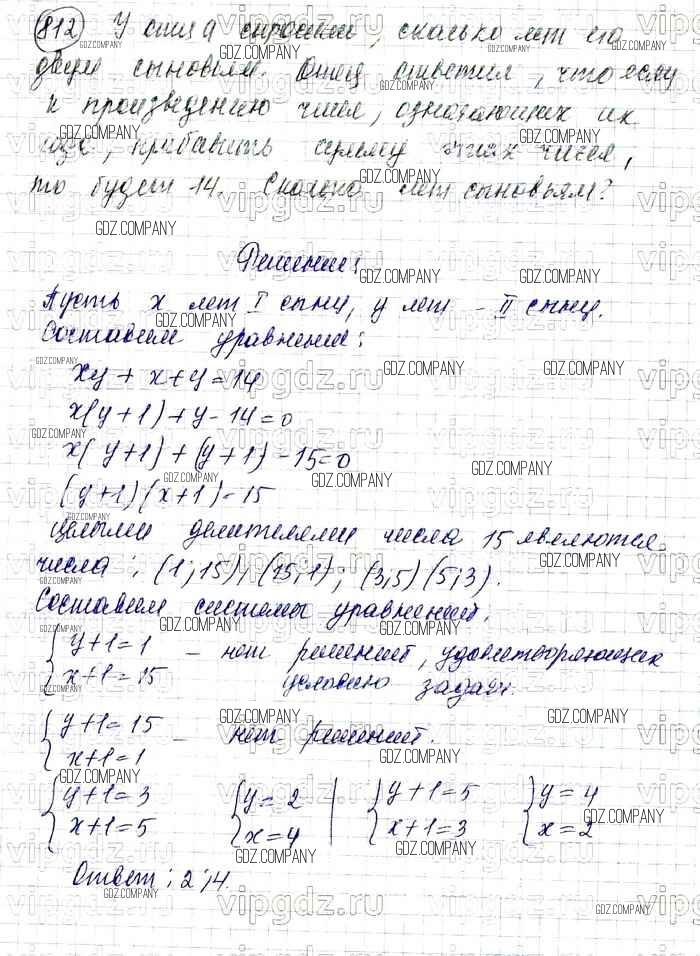 812) У отца спросили, сколько лет его
двум сыновьям. Отец ответил, что если
к произведению чисел, означающих их
года, прибавить сумму этих чисел,
то будет 14. Сколько лет сыновьям?
Решение:
Пусть x лет I сыну, y лет - II сыну.
Составим уравнение:
xy + x + y = 14
x(y+1) + y - 14 = 0
x(y+1) + (y+1) - 15 = 0
(y+1)(x+1) = 15
Целыми делителями числа 15 являются
числа: (1; 15); (15; 1); (3; 5) (5; 3).
Составим системы уравнений.
{ y+1 = 1
x+1 = 15 - нет решений, удовлетворяющих
условию задачи.
{ y+1 = 15
x+1 = 1 - нет решений.
{ y+1 = 3 { y = 2 | { y+1 = 5 { y = 4
x+1 = 5 x = 4 x+1 = 3 x = 2
Ответ: 2; 4.
GDZ.COMPANY
vipgdz.ru